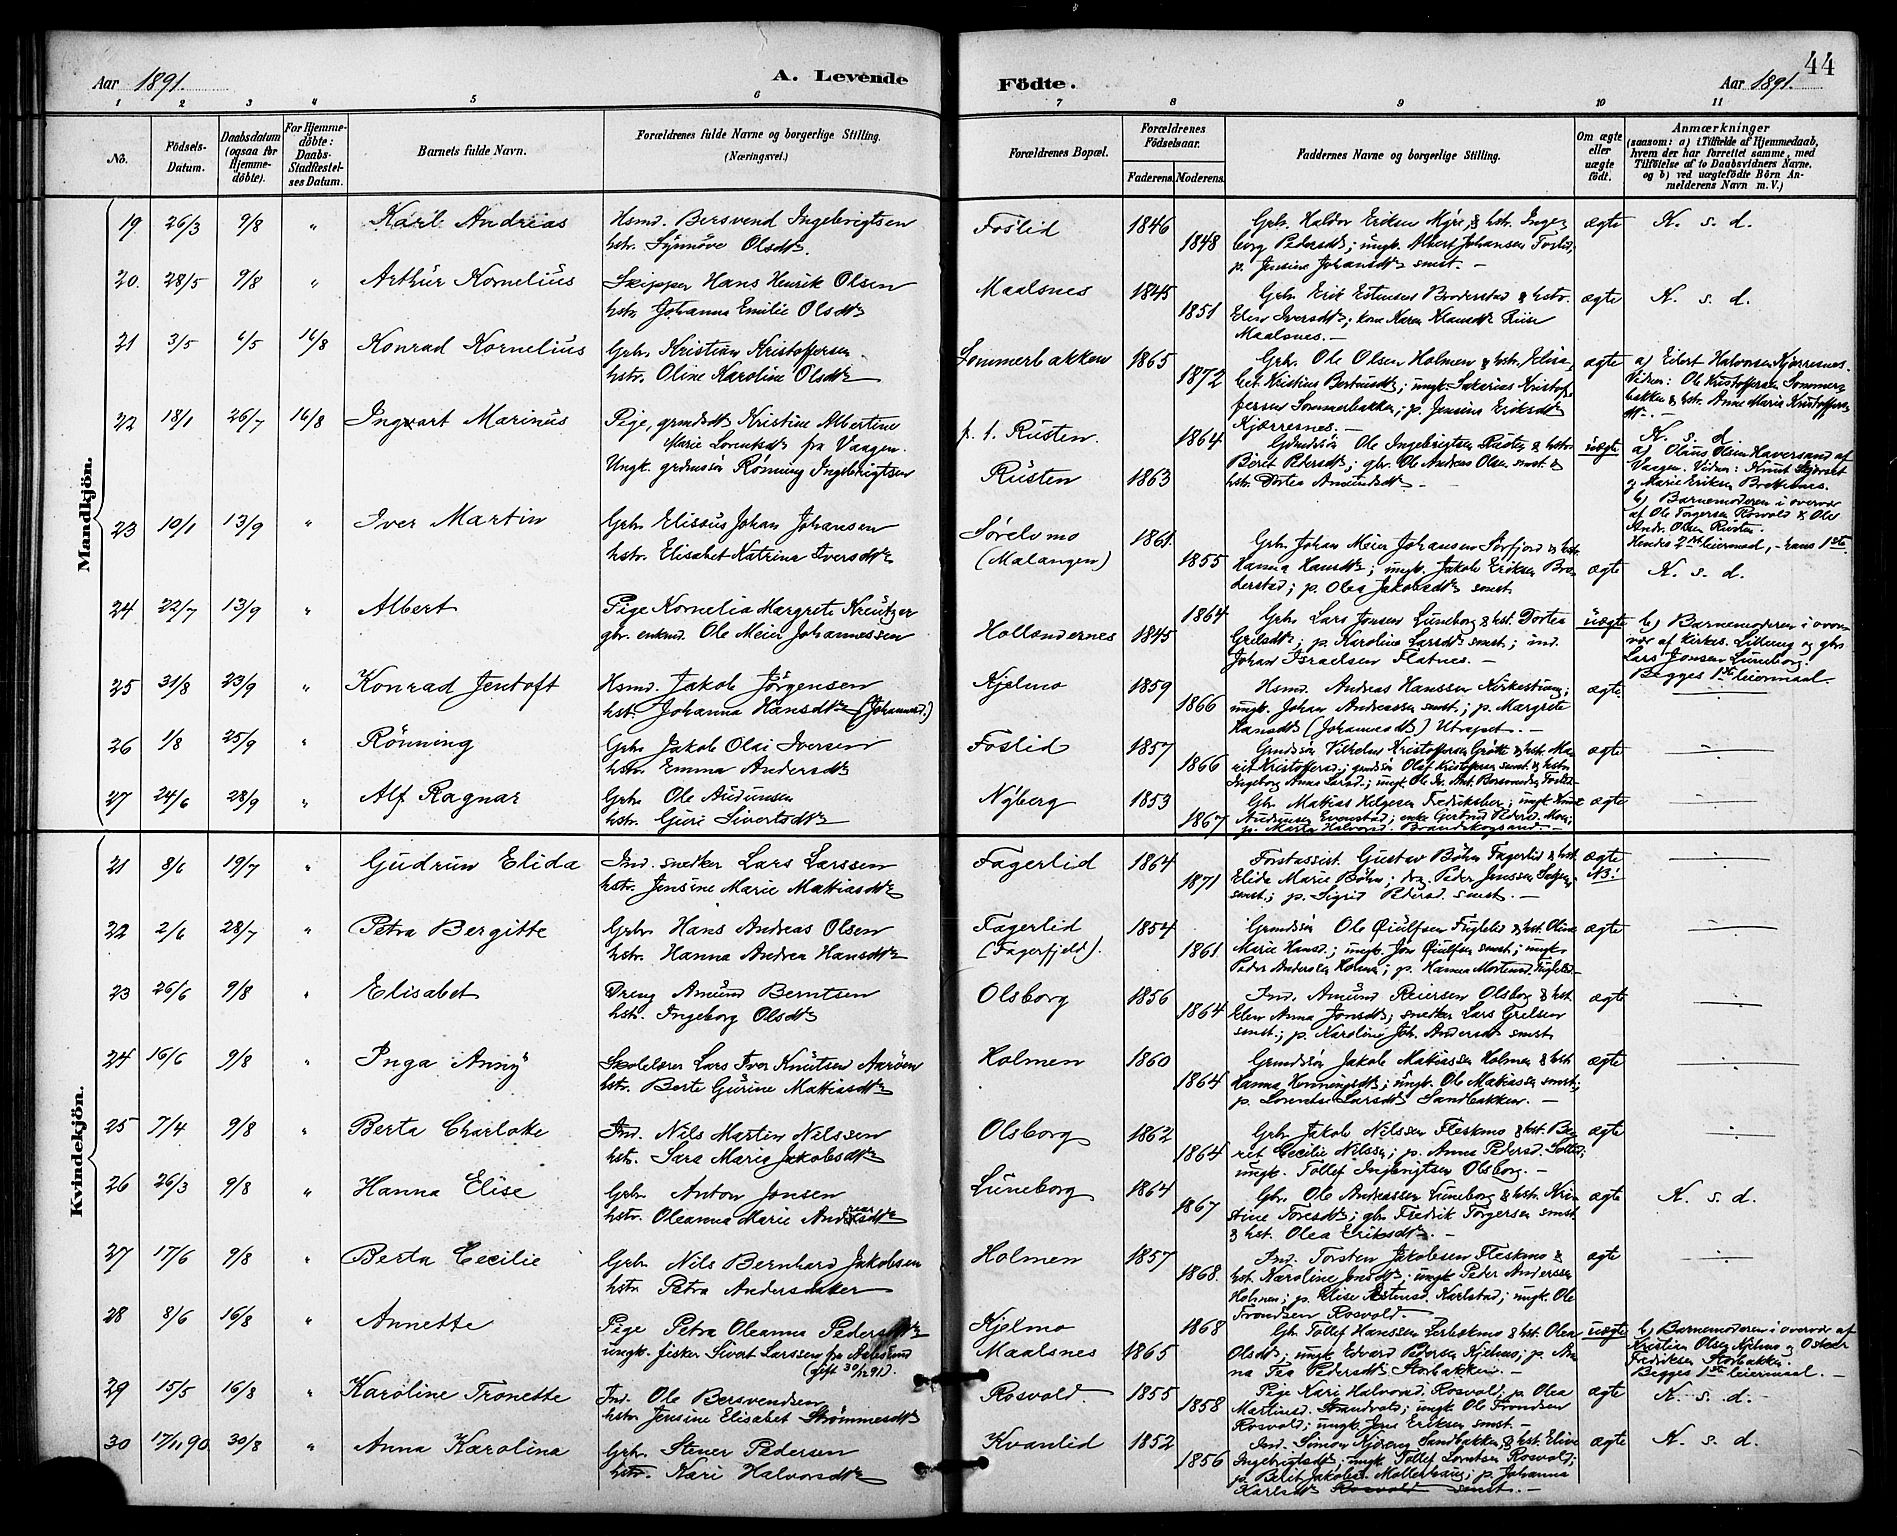 Aar 1891.
A. Levende
Födte.
Aar 1891.
44
1 2 3 4 5 6 7 8 9 10 11
No.
Födsels-Datum.
Daabsdatum (ogsaa for Hjemme-döbte).
For Hjemme-döbte: Daabs-Stadfæstel-ses Datum.
Barnets fulde Navn.
Forældrenes fulde Navne og borgerlige Stilling.
(Næringsvei.)
Forældrenes Bopæl.
Forældrenes Födselsaar.
Faderens. Moderens.
Faddernes Navne og borgerlige Stilling.
Om ægte eller uægte födt.
Anmærkninger
(saasom: a) i Tilfælde af Hjemmedaab,
hvem der har forrettet samme, med
Tilföielse af to Daabsvidners Navne,
og b) ved uægtefödte Börn An-
melderens Navn m. V.)
Mandkjön.
19 26/3 9/8 " Karl Andreas
Hsmd. Bersvend Ingebrigtsen
hstr. Synnöve Olsdtr.
Foslid 1846 1848
Gbr. Haldor Eriksen Myre, & hstr. Inge-
borg Pedersdtr; ungk. Albert Johansen Foslid,
p. Jensine Johansdtr smst. —
ægte K. s. d.
20. 28/5 9/8 " Arthur Kornelius
Skipper Hans Henrik Olsen
hstr. Johanna Emilie Olsdtr
Maalsnes 1845 1851
Gbr. Erik Estensen Broderstad & hstr.
Elen Iversdtr; kone Karen Klausdtr Riise
Maalsnes. —
ægte K. s. d.
21 3/5 6/5 16/8 Konrad Kornelius
Gbr. Kristian Kristoffersen
hstr. Oline Karoline Olsdtr
Sommerbakken 1865 1872
Gbr. Ole Olsen Holmen & hstr. Elisa-
bet Kristine Berntsdtr; ungk. Sakarias Kristof-
fersen Sommerbakken; p. Jensine Eriksdtr
Kjærresnes. —
ægte
a) Eilert Halvorsen Kjærresnes.
Vidner: Ole Kristoffersen Sommer-
bakken & hstr. Anne Marie Kristoffers-
dtr. —
K. s. d.
22 18/1 26/7 16/8 Ingvart Marinus
Pige, grmdsdtr Kristine Albertine
Marie Lorentsdtr fra Vaagen.
Ungk. grdmssön Rönning Ingebrigtsen
p. t. Rusten. 1864
Rusten 1863
Grmdssön Ole Ingebrigtsen Rusten & hstr
Beret Petersdtr; gbr. Ole Andreas Olsen smst. &
hstr. Dortea Amundsdtr —
uægte
a) Olaus Olsen Haversand af
Vaagen. Vidner: Knut
og Marie Eriksen
b) Barnemoderen i overvær
af Ole Torgersen Rosvold & Ole
Andr. Olsen Rusten.
Hendes 2det leiermaal, – hans 1ste.
23 10/1 13/9 " Iver Martin
Gbr. Elisæus Johan Johansen
hstr. Elisabet Katrine Iversdtr
Sörelvmo
(Malangen) 1861. 1855
Gbr. Johan Meier Johansen Sörfjord & hstr
Hanna Hansdtr; ungk. Jakob Eriksen Bro-
derstad; p. Olea Jakobsdtr smst
ægte K. s. d.
24 22/7 13/9 " Albert
Pige Kornelia Margrete Kreutzer
gbr. enkmd. Ole Meier Johannessen
Hollendernes 1845 1864
Gbr. Lars Jonsen Luneborg & hst. Dortea
Grelsdtr; p. Karoline Larsdtr smst; ind.
Johan Israelsen Flatnes. —
uægte
b) Barnemoderen i over-
vær af kirkes. Lilleng og gbr.
Lars Jonsen Luneborg.
Begges 1ste leiermaal.
25 31/8 23/9 " Konrad Jentoft
Hsmd. Jakob Jörgensen
hst. Johanna Hansdtr (Johannesd.)
Kjelmo 1859 1866
Hsmd. Andreas Hanssen Kirkestuen;
ungk. Johan Andreassen smst.; p. Margrete
Hansdtr (Johannesdtr) Utrapet. —
ægte —:—
26 1/8 25/9 " Rönning
Gbr. Jakob Olai Iversen
hstr. Emma Andersdtr
Foslid 1857 1866
Grmdssön Vilhelm Kristoffersen Grötte & hstr. Ma-
rit Kristoffersd.; grmdssön Olaf Kristoffersen smst. & hstr
Ingeborg Anna Larsd.; ungk. Ole Foslid —
ægte —:—
27 24/6 28/9 " Alf Ragnar
Gbr. Ole Audunsen
hstr. Guri Sivertsdtr
Nyberg 1853 1867
Gbr. Matias Helgesen Fredriksberg; ungk. Knut
Audunsen Evenstad; enke Gertrud Pedersd. Moen;
p. Marta Halvorsd. Brandskogsand —
ægte —:—
Kvindekjön.
21 8/6 19/7 " Gudrun Elida
Ind. snedker Lars Larssen
hstr. Jensine Marie Mattiasdtr
Fagerlid 1864 1871
Forstassist. Gustav Böhn Fagerlid & hst.
Elida Marie Böhn; drg Peder Jenssen
smst; p. Sigrid Pedersd. smst. —
ægte
NB! —:—
22 2/6 28/7 " Petra Bergitte
Gbr. Hans Andreas Olsen
hstr. Hanna Andrea Hansdtr
Fagerlid
(Fagerfjeld). 1854 1861.
Grmdssön Ole Öiulfsen Fuglelid & hst. Oline
Marie Hansd.; ungk. Jon Öiulfsen smst.; ungk.
Peder Andersen Holmen; p. Hanna Mortensd. Fuglelid —
ægte —:—
23 26/6 9/8 " Elisabet
Dreng Amund Berntsen
hstr. Ingeborg Olsdtr
Olsborg 1856 1864
Ind. Amund Reiersen Olsborg & hst.
Elen Anna Jonsdtr; snedker Lars Grelsen
smst.; p. Karoline Joh. Andersdtr smst.
ægte —:—
24 16/6 9/8 " Inga Anny
Skolelærer Lars Iver Knutsen Aaröen
hstr. Berte Gurine Mattiasdtr
Holmen 1860 1864
Grmdssön Jakob Matiassen Holmen & hst.
Hanna Henningsdtr; ungk. Ole Matiassen smst.;
p. Lorentse Larsdtr Sandbakken. —
ægte —:—
25 7/4 9/8 " Berta Charlotte
Ind. Nils Martin Nilssen
hstr. Sara Maria Jakobsdtr
Olsborg 1862 1864
Gbr. Jakob Nilssen Fleskmo & hst. Be-
ret Cecilie Nilssen; p. Anna Pedersd. Soltlid;
ungk. Tollef Ingebrigtsen Olsborg. —
ægte —:—
26 26/3 9/8 " Hanna Elise
Gbr. Anton Jonsen
hstr. Oleanna Marie Andreasdtr
Luneborg 1864 1867
Gbr. Ole Andreassen Luneborg & hstr. Kri-
stine Toresdtr; gbr. Fredrik Torgersen smst.
& hst. Olea Eriksdtr. —
ægte K. s. d.
27 17/6 9/8 " Berta Cecilie
Gbr. Nils Bernhard Jakobsen
hstr. Petra Andersdatter
Holmen 1857 1868.
Ind. Torsten Jakobsen Fleskmo &
hst. Karoline Jonsdtr; ungk. Peder Anderssen
Holmen; p. Elise Estensd. Karlstad; ungk. Ole
Trondsen Rosvold.
ægte —:—
28 8/6 16/8 " Annette
Pige Petra Oleanna Pedersdtr
ungk. fisker Sivert Larssen fra Aalesund
(gift 30/12 91).
Kjelmo 1868
Maalsnes 1865
Gbr. Tollef Hanssen Lerbækmo & hst. Olea
Olsdtr; ungk Edvard Pedersen Kjelmo; p. An-
na Tea Pedersdtr Storbakken. —
uægte
b) Barnemoderen i overvær af
Kristian Olsen Kjelmo og Oskar
Fredriksen Storbakken.
Begges 1ste leiermaal. —
29 15/5 16/8 " Karoline Tronette
Ind. Ole Bersvendsen
hstr. Jensine Elisabet Strömmesdtr
Rosvold 1855 1858
Pige Kari Halvorsd. Rosvold; p. Olea
Martinsd. Strandvold; ungk Ole Trondsen
Rosvold; ungk. Jens Eriksen smst. —
ægte K. s. d. —
30 17/11 90 30/8 " Anna Karolina
Gbr. Stener Pedersen
hstr. Kari Halvorsdtr
Kvanlid 1852 1856
Ind. Simon Sandbakken, & hst. Eline
Ingebrigtsdtr; ungk Tollef Lorntsen Rosvold;
p. Berit Jakobsd. Mollerhaug; p. Johanna
Karlsdtr Rosvold smst. —
ægte K. s. d.